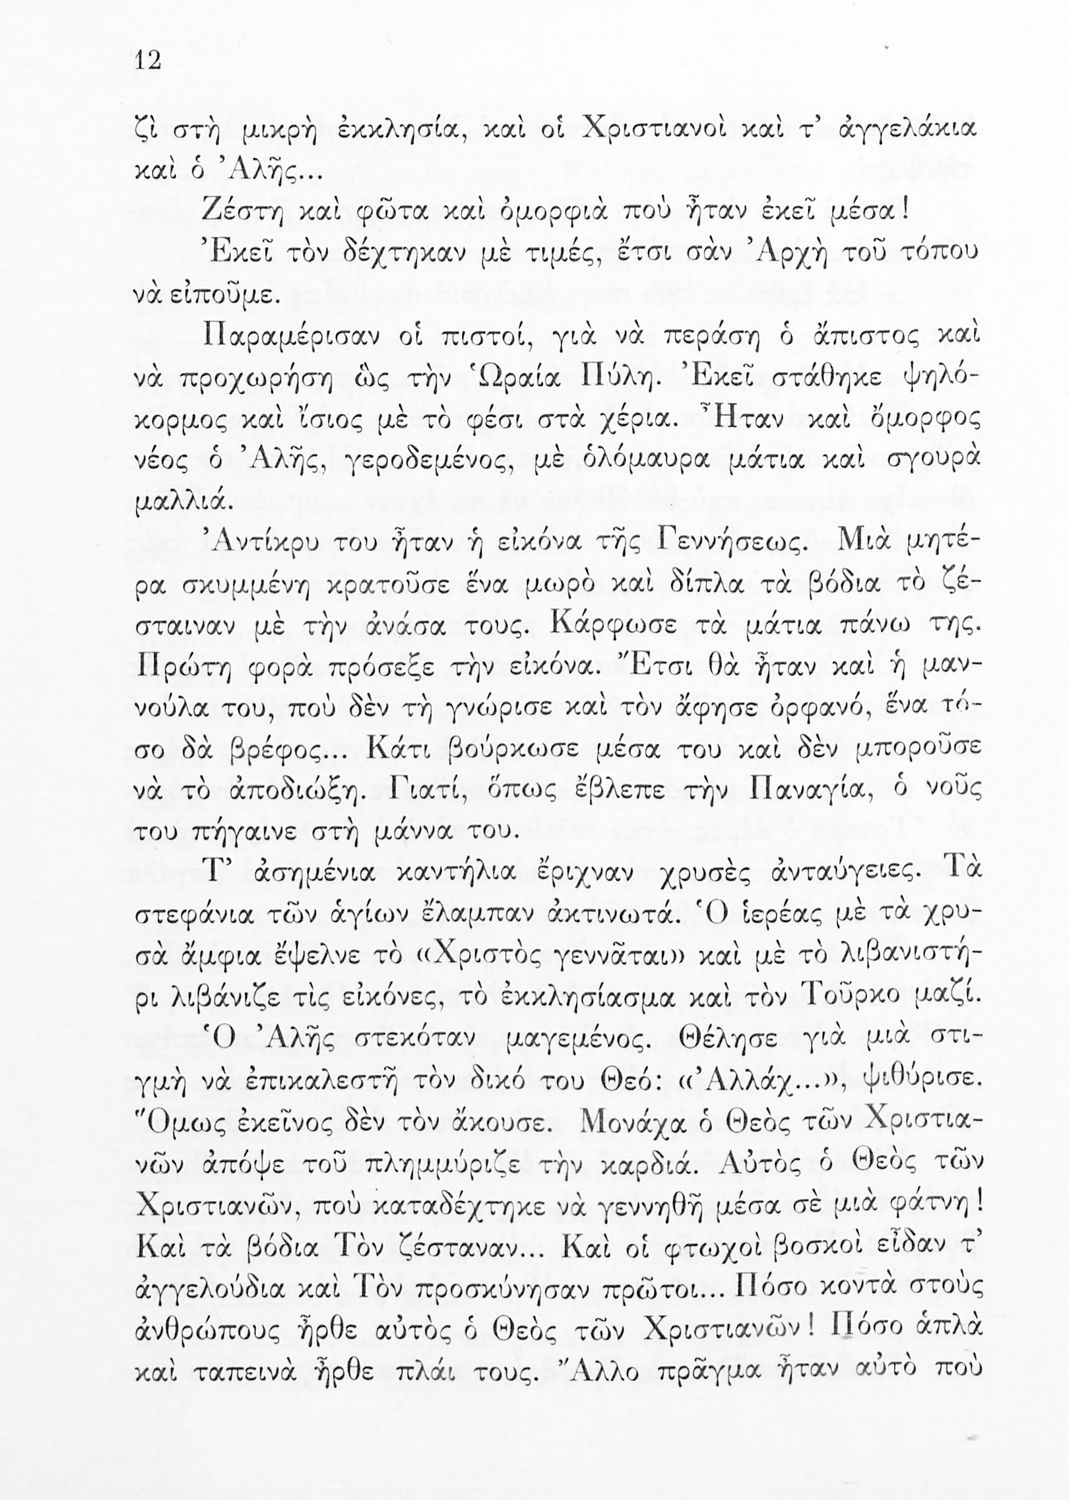 12
ζὶ στὴ μικρὴ ἐκκλησία, καὶ οἱ Χριστιανοὶ καὶ τ’ ἀγγελάκια
καὶ ὁ Ἀλῆς...
Ζέστη καὶ φῶτα καὶ ὀμορφιὰ ποὺ ἦταν ἐκεῖ μέσα!
Ἐκεῖ τὸν δέχτηκαν μὲ τιμές, ἔτσι σὰν Ἀρχὴ τοῦ τόπου
νὰ εἰποῦμε.
Παραμέρισαν οἱ πιστοί, γιὰ νὰ περάση ὁ ἄπιστος καὶ
νὰ προχωρήση ὣς τὴν Ὡραία Πύλη. Ἐκεῖ στάθηκε ψηλό-
κορμος καὶ ἴσιος μὲ τὸ φέσι στὰ χέρια. Ἦταν καὶ ὄμορφος
νέος ὁ Ἀλῆς, γεροδεμένος, μὲ ὁλόμαυρα μάτια καὶ σγουρὰ
μαλλιά.
Ἀντίκρυ του ἦταν ἡ εἰκόνα τῆς Γεννήσεως. Μιὰ μητέ-
ρα σκυμμένη κρατοῦσε ἕνα μωρὸ καὶ δίπλα τὰ βόδια τὸ ζέ-
σταιναν μὲ τὴν ἀνάσα τους. Κάρφωσε τὰ μάτια πάνω της.
Πρώτη φορὰ πρόσεξε τὴν εἰκόνα. Ἔτσι θὰ ἦταν καὶ ἡ μαν-
νούλα του, ποὺ δὲν τὴ γνώρισε καὶ τὸν ἄφησε ὀρφανό, ἕνα τό-
σο δὰ βρέφος... Κάτι βούρκωσε μέσα του καὶ δὲν μποροῦσε
νὰ τὸ ἀποδιώξη. Γιατί, ὅπως ἔβλεπε τὴν Παναγία, ὁ νοῦς
του πήγαινε στὴ μάννα του.
Τ’ ἀσημένια καντήλια ἔριχναν χρυσὲς ἀνταύγειες. Τὰ
στεφάνια τῶν ἁγίων ἔλαμπαν ἀκτινωτά. Ὁ ἱερέας μὲ τὰ χρυ-
σὰ ἄμφια ἔψελνε τὸ «Χριστὸς γεννᾶται» καὶ μὲ τὸ λιβανιστή-
ρι λιβάνιζε τὶς εἰκόνες, τὸ ἐκκλησίασμα καὶ τὸν Τοῦρκο μαζί.
Ὁ Ἀλῆς στεκόταν μαγεμένος. Θέλησε γιὰ μιὰ στι-
γμὴ νὰ ἐπικαλεστῆ τὸν δικό του Θεό: «Ἀλλάχ...», ψιθύρισε.
Ὅμως ἐκεῖνος δὲν τὸν ἄκουσε. Μονάχα ὁ Θεὸς τῶν Χριστια-
νῶν ἀπόψε τοῦ πλημμύριζε τὴν καρδιά. Αὐτὸς ὁ Θεὸς τῶν
Χριστιανῶν, ποὺ καταδέχτηκε νὰ γεννηθῆ μέσα σὲ μιὰ φάτνη!
Καὶ τὰ βόδια Τὸν ζέσταναν... Καὶ οἱ φτωχοὶ βοσκοὶ εἶδαν τ’
ἀγγελούδια καὶ Τὸν προσκύνησαν πρῶτοι... Πόσο κοντὰ στοὺς
ἀνθρώπους ἦρθε αὐτὸς ὁ Θεὸς τῶν Χριστιανῶν! Πόσο ἁπλὰ
καὶ ταπεινὰ ἦρθε πλάι τους. Ἄλλο πρᾶγμα ἦταν αὐτὸ ποὺ